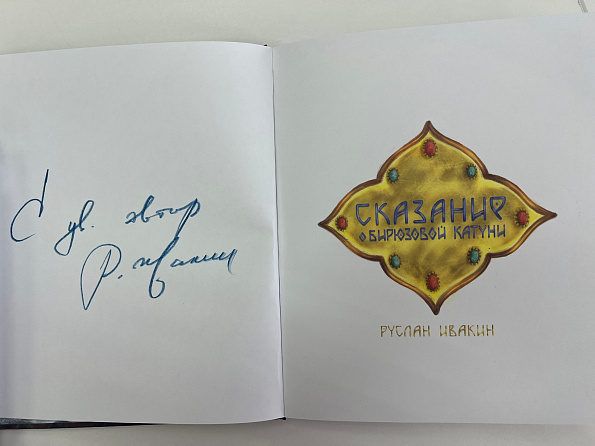 С ув. автор
Р. Ивакин
СКАЗАНИЕ
О БИРЮЗОВОЙ КАТУНИ
РУСЛАН ИВАКИН